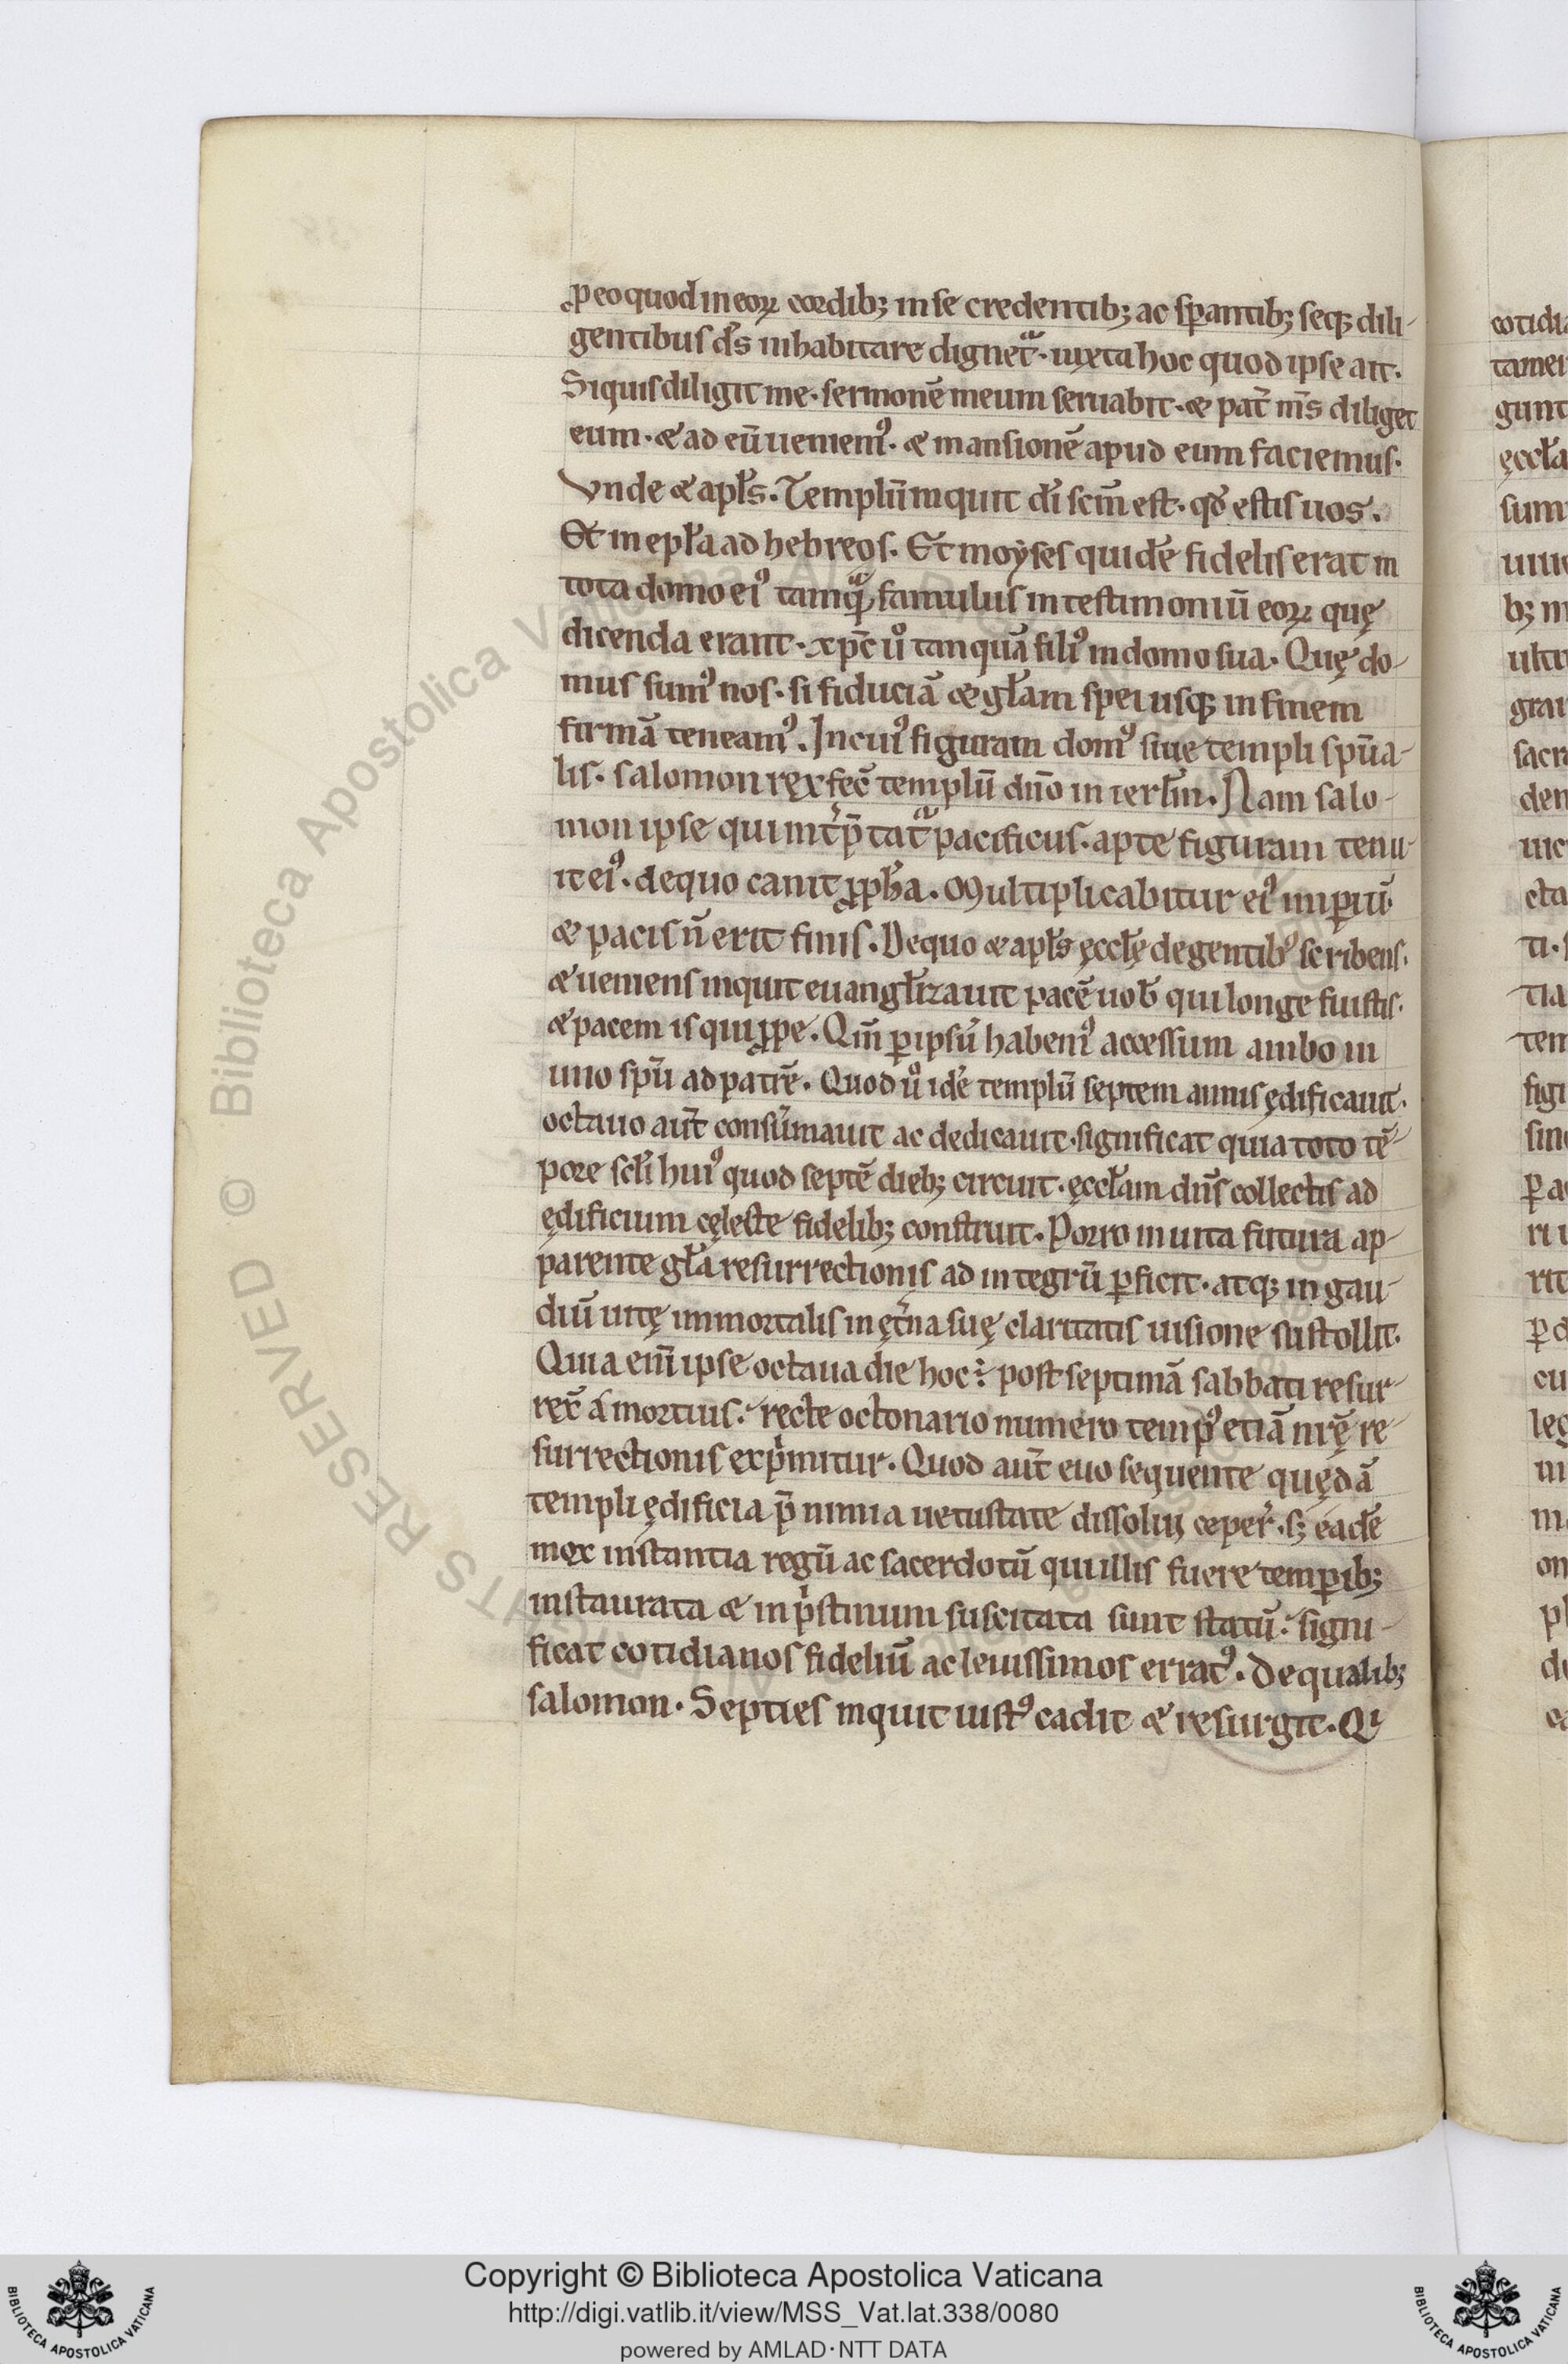 ꝓ eo quod in eoꝝ cordibꝫ in se credentibꝫ ac sꝑantibꝫ seqꝫ dili-
gentibus ds̄ inhabitare dignet᷑· iuxta hoc quod ipse ait.
Si quis diligit me· sermonē meum seruabit· & pat̄ ms̄ diliget
eum· & ad eū ueniemꝰ· & mansionē apud eum faciemus.
Vnde & apl̄s. Templū inquit dī scm̄ est· qd̄ estis uos.
Et in epl̄a ad hebreos. Et moẏses quidē fidelis erat in
tota domo eiꝰ tamqᷓ famulus in testimoniū eoꝝ quę
dicenda erant· xpc̄ ů tanquā filiꝰ in domo sua. Quę do-
mus sumꝰ nos· si fiduciā & gl̄am spei usqꝫ in finem
firmā teneamꝰ. In cuiꝰ figuram domꝰ siue templi spūa-
lis· salomon rex fec̄ templū dn̄o in ierl̄m. Nam salo-
mon ipse qui int̄p̄tat᷑ pacificus· apte figuram tenu-
it eiꝰ· de quo canit ꝓph̄a. Multiplicabitur eiꝰ imꝑiū·
& pacis n̄ erit finis. De quo & apl̄s ęccl̄ę de gentibꝰ scribens.
& ueniens inquit euangl̄izauit pacē uob̄ qui longe fuistis·
& pacem is qui ꝓpe. Qm̄ ꝑ ipsū habemꝰ accessum ambo in
uno spū ad patrē. Quod ů idē templū septem annis ędificauit·
octauo aut̄ consūmauit ac dedicauit· significat quia toto tē-
pore scl̄i huiꝰ quod septē diebꝫ circuit· ęccl̄am dn̄s collectis ad
ędificium cęleste fidelibꝫ construit. Porro in uita futura ap-
parente gl̄a resurrectionis ad integrū ꝑficit· atqꝫ in gau-
diū uitę immortalis in ęt̄na suę claritatis uisione sustollit.
Quia enī ipse octaua die hoc ÷ post septimā sabbati resur-
rex̄ a mortuis· recte octonario numero tempꝰ etiā nr̄ę re-
surrectionis exp̍mitur. Quod aut̄ euo sequente quędā
templi ędificia p̄ nimia uetustate dissolui ceper̄· sꝫ eadē
mox instantia regū ac sacerdotū qui illis fuere temꝑibꝫ
instaurata & in p̍stinum suscitata sunt statū· signi-
ficat cotidianos fideliū ac leuissimos erratꝰ. De qualibꝫ
salomon. Septies inquit iustꝰ cadit & resurgit. Qi
cotidia
tamen
gunt
ęccl̄a
sum
uiu
bꝫ in
ultu
grau
sacra
den
uic
cta
ti· s
tia
tem
figu
sin
ꝑ a
ri u
rit
ꝑ d
cu
leg
in
m
on
pl
de
ea
RIGHTS RESERVED © Biblioteca Apostolica Vaticana
Copyright © Biblioteca Apostolica Vaticana
http://digi.vatlib.it/view/MSS_Vat.lat.338/0080
powered by AMLAD·NTT DATA
BIBLIOTECA APOSTOLICA VATICANA
BIBLIOTECA APOSTOLICA VATICANA